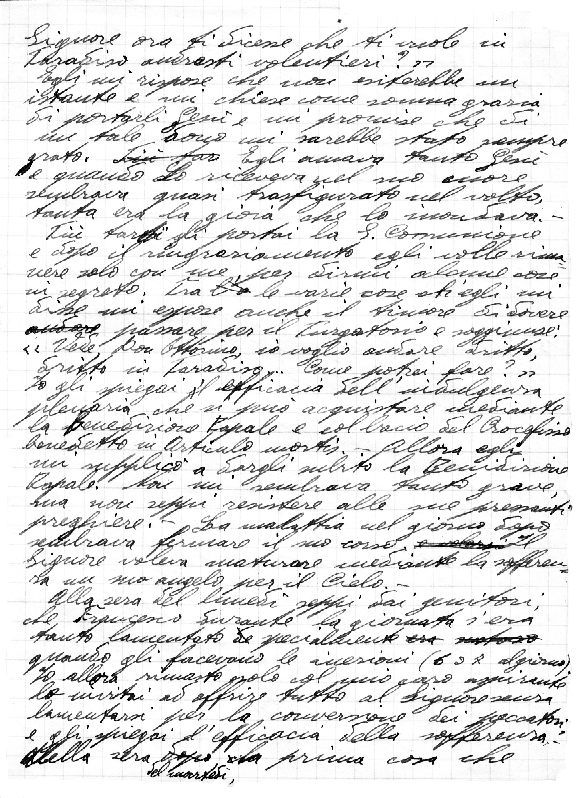 Signore ora ti dicesse che ti vuole in
Paradiso andresti volentieri? "
Egli mi rispose che non esiterebbe un
istante e mi chiese come somma grazia
di portarli Gesù e mi promise che di
un tale dono mi sarebbe stato sempre
grato. Egli amava tanto Gesù
e quando lo riceveva nel suo cuore
sembrava quasi trasfigurato nel volto,
tanta era la gioia che lo inondava. -
Più tardi gli portai la S. Comunione
e dopo il ringraziamento egli volle rima-
nere solo con me, per dirmi alcune cose
in segreto. Tra le varie cose ch'egli mi
disse mi espose anche il timore di dovere
passare per il Purgatorio e soggiunse:
" Vede, Don Ottorino, io voglio andare dritto,
dritto in Paradiso... Come potrei fare? "
Io gli spiegai l'efficacia dell'indulgenza
plenaria che si può acquistare mediante
la Benedizione Papale e col bacio del Crocefisso
benedetto in Articulo mortis. - Allora egli
mi supplicò a dargli subito la Benedizione
Papale. Non mi sembrava tanto grave,
ma non seppi resistere alle sue pressanti
preghiere. - La malattia nel giorno dopo
sembrava fermare il suo corso, il
Signore voleva maturare mediante la sofferen-
za un suo angelo per il Cielo. -
Alla sera del lunedì seppi dai genitori,
che Francesco durante la giornata s'era
tanto lamentato specialmente
quando gli facevano le iniezioni (6 o 7 al giorno)
Io allora rimasto solo col mio caro aspirante
lo invitai ad offrire tutto al Signore senza
lamentarsi per la conversione dei peccatori
e gli spiegai l'efficacia della sofferenza. -
Alla sera dopo la prima cosa che
del martedì,